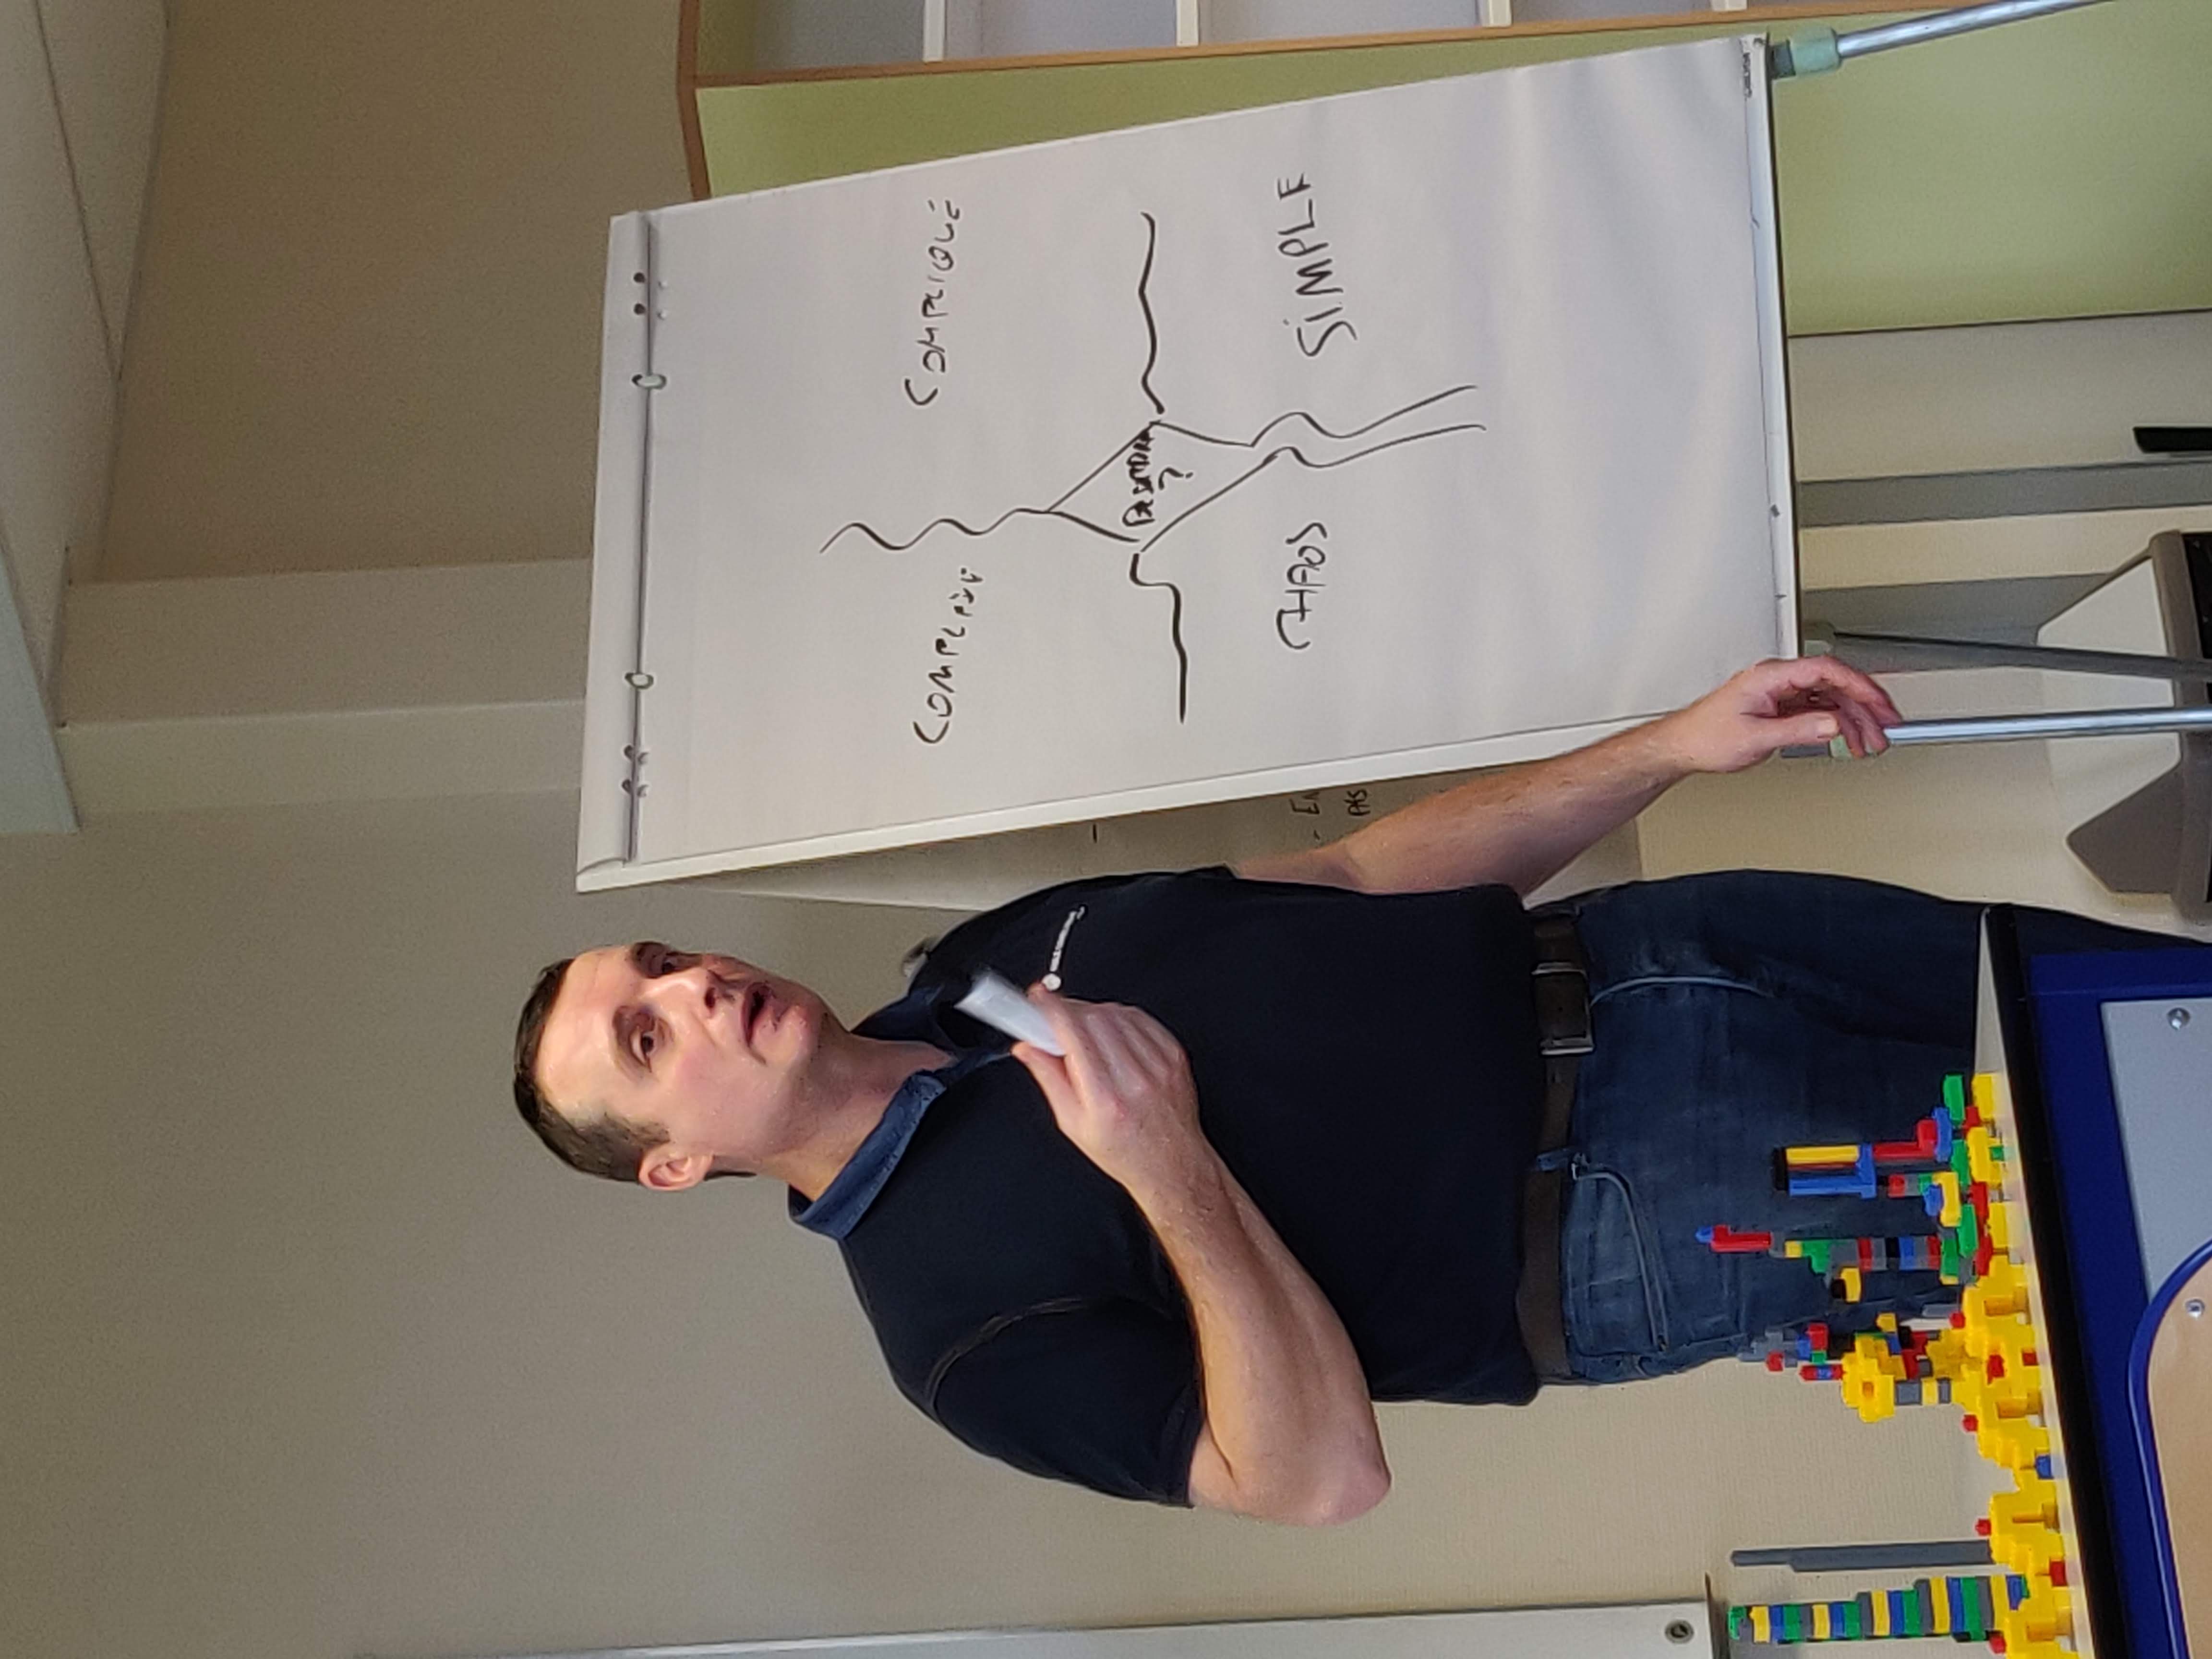 COMPLEXE
COMPLIQUÉ
DÉSORDRE
?
CHAOS
SIMPLE
EN
PAS